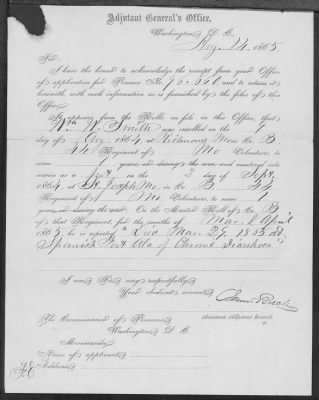 Adjutant General's Office,
Washington, D. C.
Aug. 14. 1865
Sir:
I have the honor to acknowledge the receipt from your Office
of application for Pension No. and to return it
herewith, with such information as is furnished by the files of this
Office.
It appears from the Rolls on file in this Office, that
Wm W. Smith was enrolled on the 9
day of Aug, 1864, at Mo in Co. B
44 Regiment of Mo Volunteers, to serve
1 years, or during the war, and mustered into
service as a on the 3 day of Sept,
1864, at St Joseph Mo, in Co. B 44
Regiment of Mo Volunteers, to serve 1
years, or during the war. On the Muster Roll of Co. B
of that Regiment, for the months of Mar & April
1865, he is reported "Died Mar 29. 1865 at
Spanish Fort Ala of Chronic Diarrhoea"
I am Sir, very respectfully
Your obedient servant
Assistant Adjutant General.
The Commissioner of Pensions,
Washington D. C.
Memoranda
Name of applicant
Address